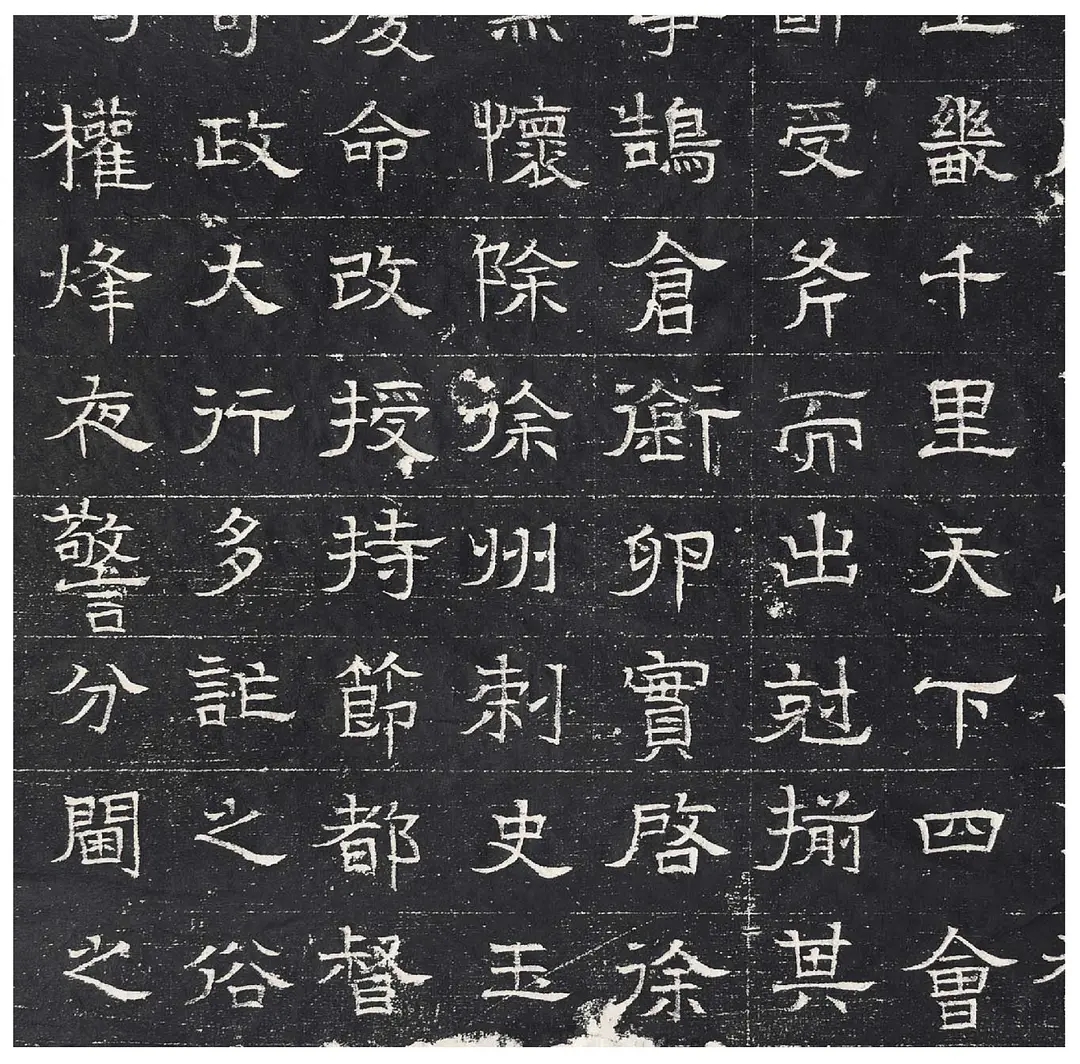 畿千里天下四會
受斧而出尅揃其
鵠倉銜卵實啓徐
懷除徐州刺史玉
命改授持節都督
政大行多詐之俗
權烽夜警分閫之